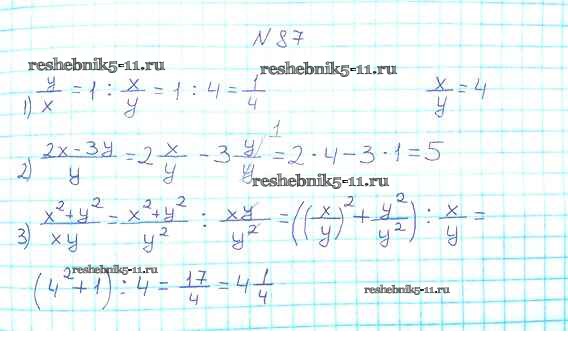 N 87
reshebnik5-11.ru
reshebnik5-11.ru
1) y/x = 1 : x/y = 1 : 4 = 1/4    x/y = 4
2) (2x-3y)/y = 2 x/y - 3 y/y 1 = 2 · 4 - 3 · 1 = 5
reshebnik5-11.ru
3) (x²+y²)/(xy) = (x²+y²)/y² : xy/y² = ((x/y)² + y²/y²) : x/y =
reshebnik5-11.ru
(4²+1) : 4 = 17/4 = 4 1/4
reshebnik5-11.ru